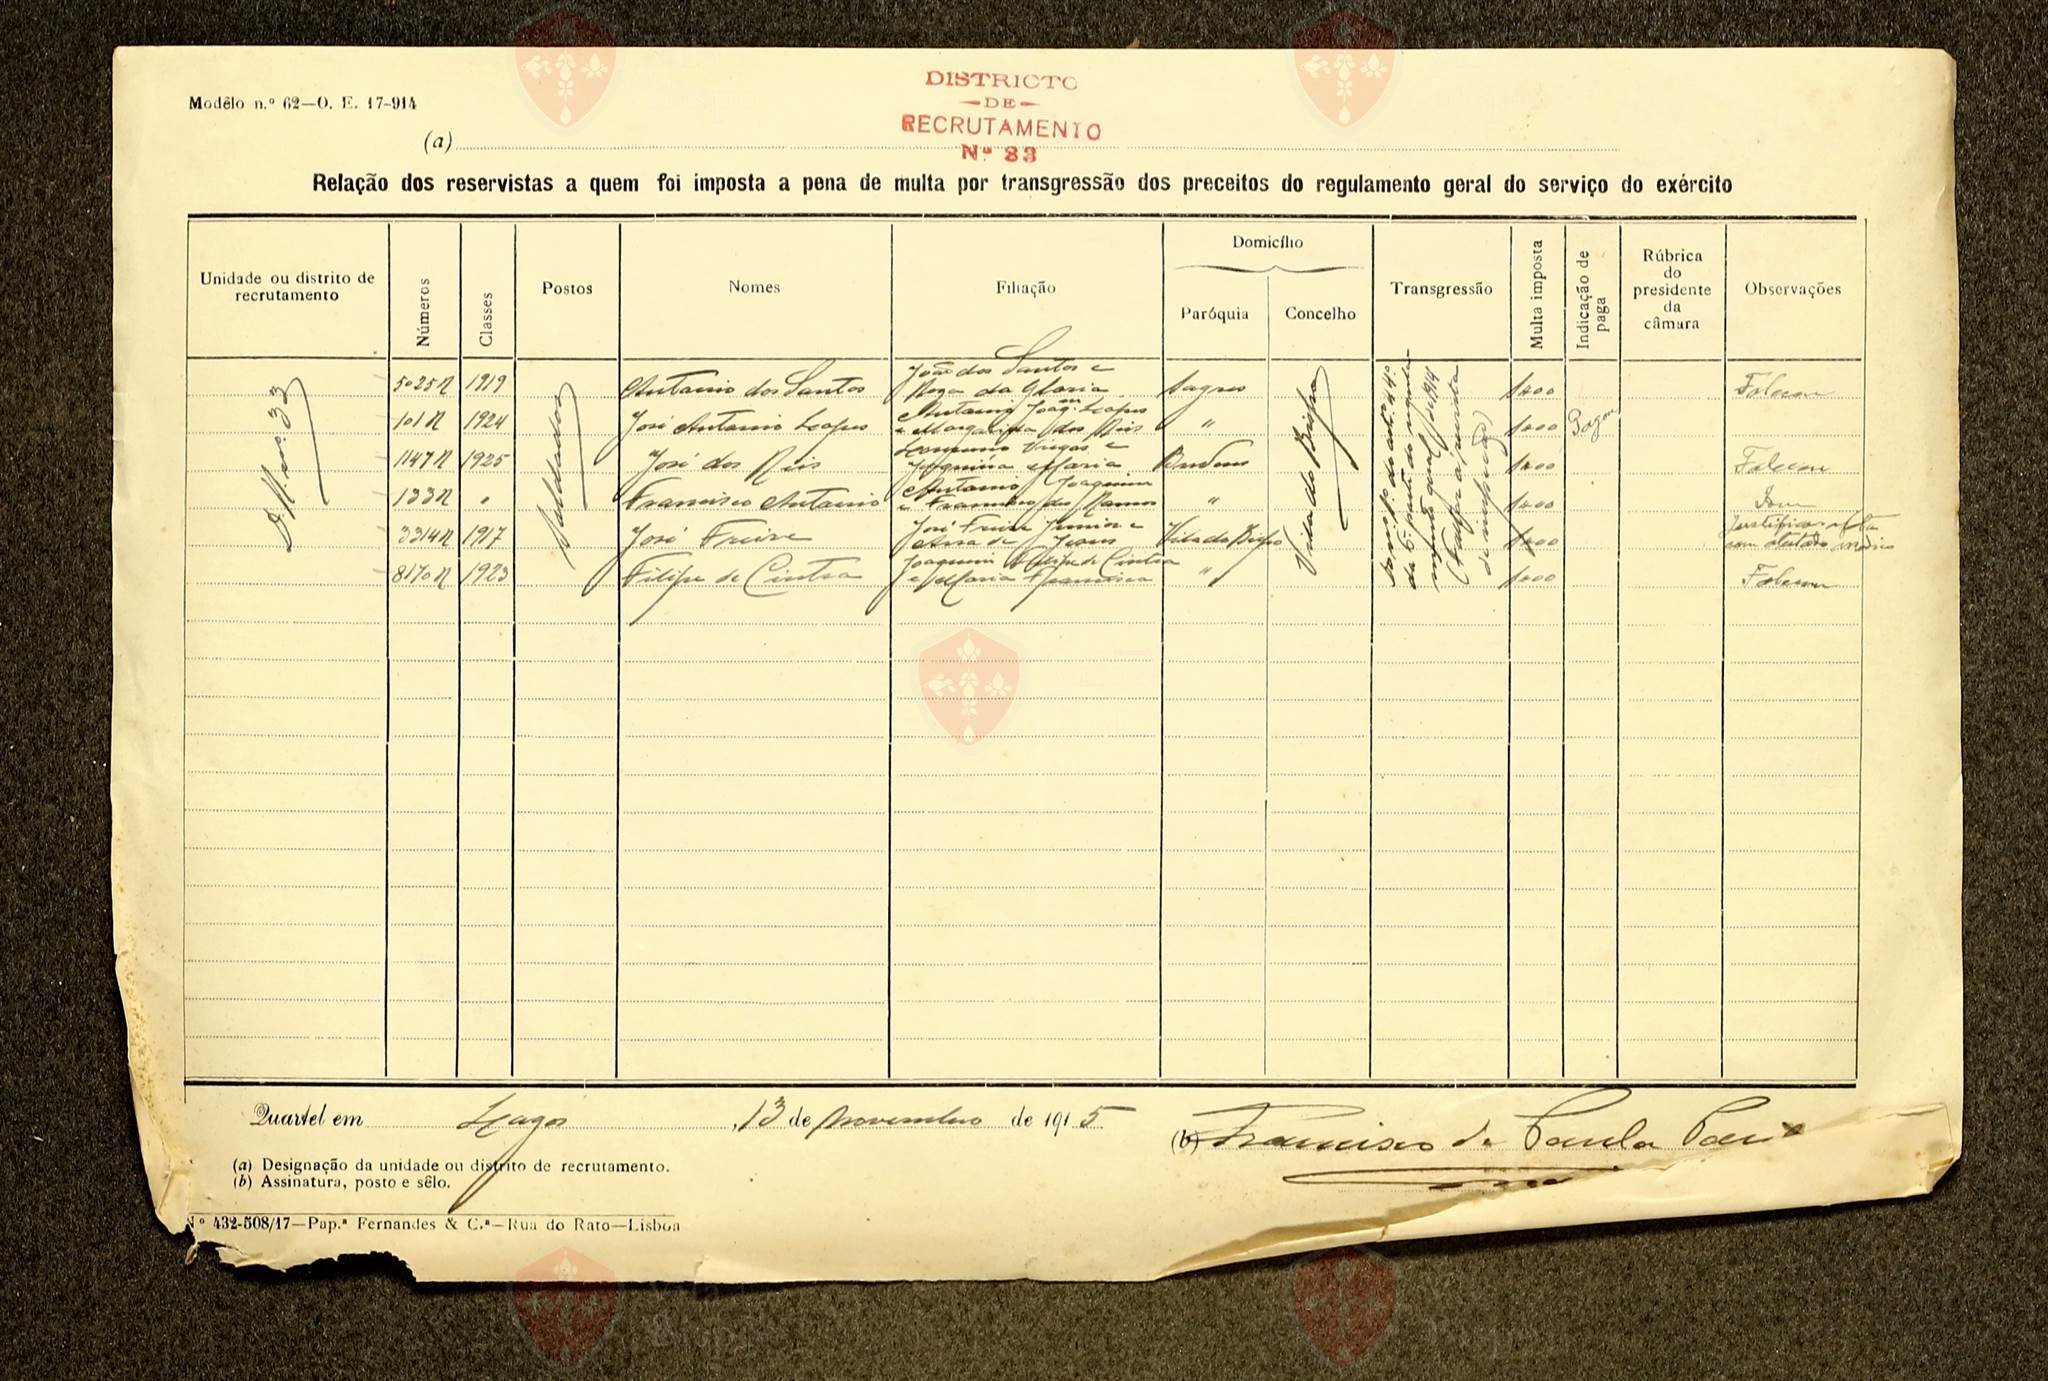 Modêlo n.º 62—O. E. 17-914
DISTRICTO
—DE—
RECRUTAMENTO
Nº 33
(a)
Relação dos reservistas a quem foi imposta a pena de multa por transgressão dos preceitos do regulamento geral do serviço do exército
Unidade ou distrito de recrutamento
Números
Classes
Postos
Nomes
Filiação
Domicílio
Paróquia
Concelho
Transgressão
Multa imposta
Indicação de paga
Rúbrica do presidente da câmara
Observações
33
Soldados
Vila do Bispo
5025 N 1919 Antonio dos Santos João dos Santos e Roza da Gloria Sagres 1$00
101 N 1924 José Antonio Lopes Antonio Joaqm Lopes e Margarida dos Reis " 1$00 Pagou
1147 N 1925 José dos Reis Viegas e Joaquina Maria 1$00
133 N " Francisco Antonio Antonio Joaquim e Ramos " 1$00
3314 N 1917 José Freire José Freire Junior e Anna de Jesus Vila do Bispo 1$00 Justificou a falta com atestado médico
8170 N 1923 Filipe de Cintra Joaquim Filipe de Cintra e Maria Francisca " 1$00
Quartel em Lagos, 13 de Novembro de 1915
(b) Francisco de Paula
(a) Designação da unidade ou distrito de recrutamento.
(b) Assinatura, posto e sêlo.
Nº 432-508/17—Pap.ª Fernandes & C.ª—Rua do Rato—Lisboa